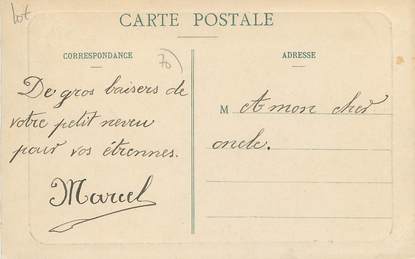 lot
CARTE POSTALE
CORRESPONDANCE
70
ADRESSE
De gros baisers de
votre petit neveu
pour vos étrennes.
Marcel
M A mon cher
oncle.